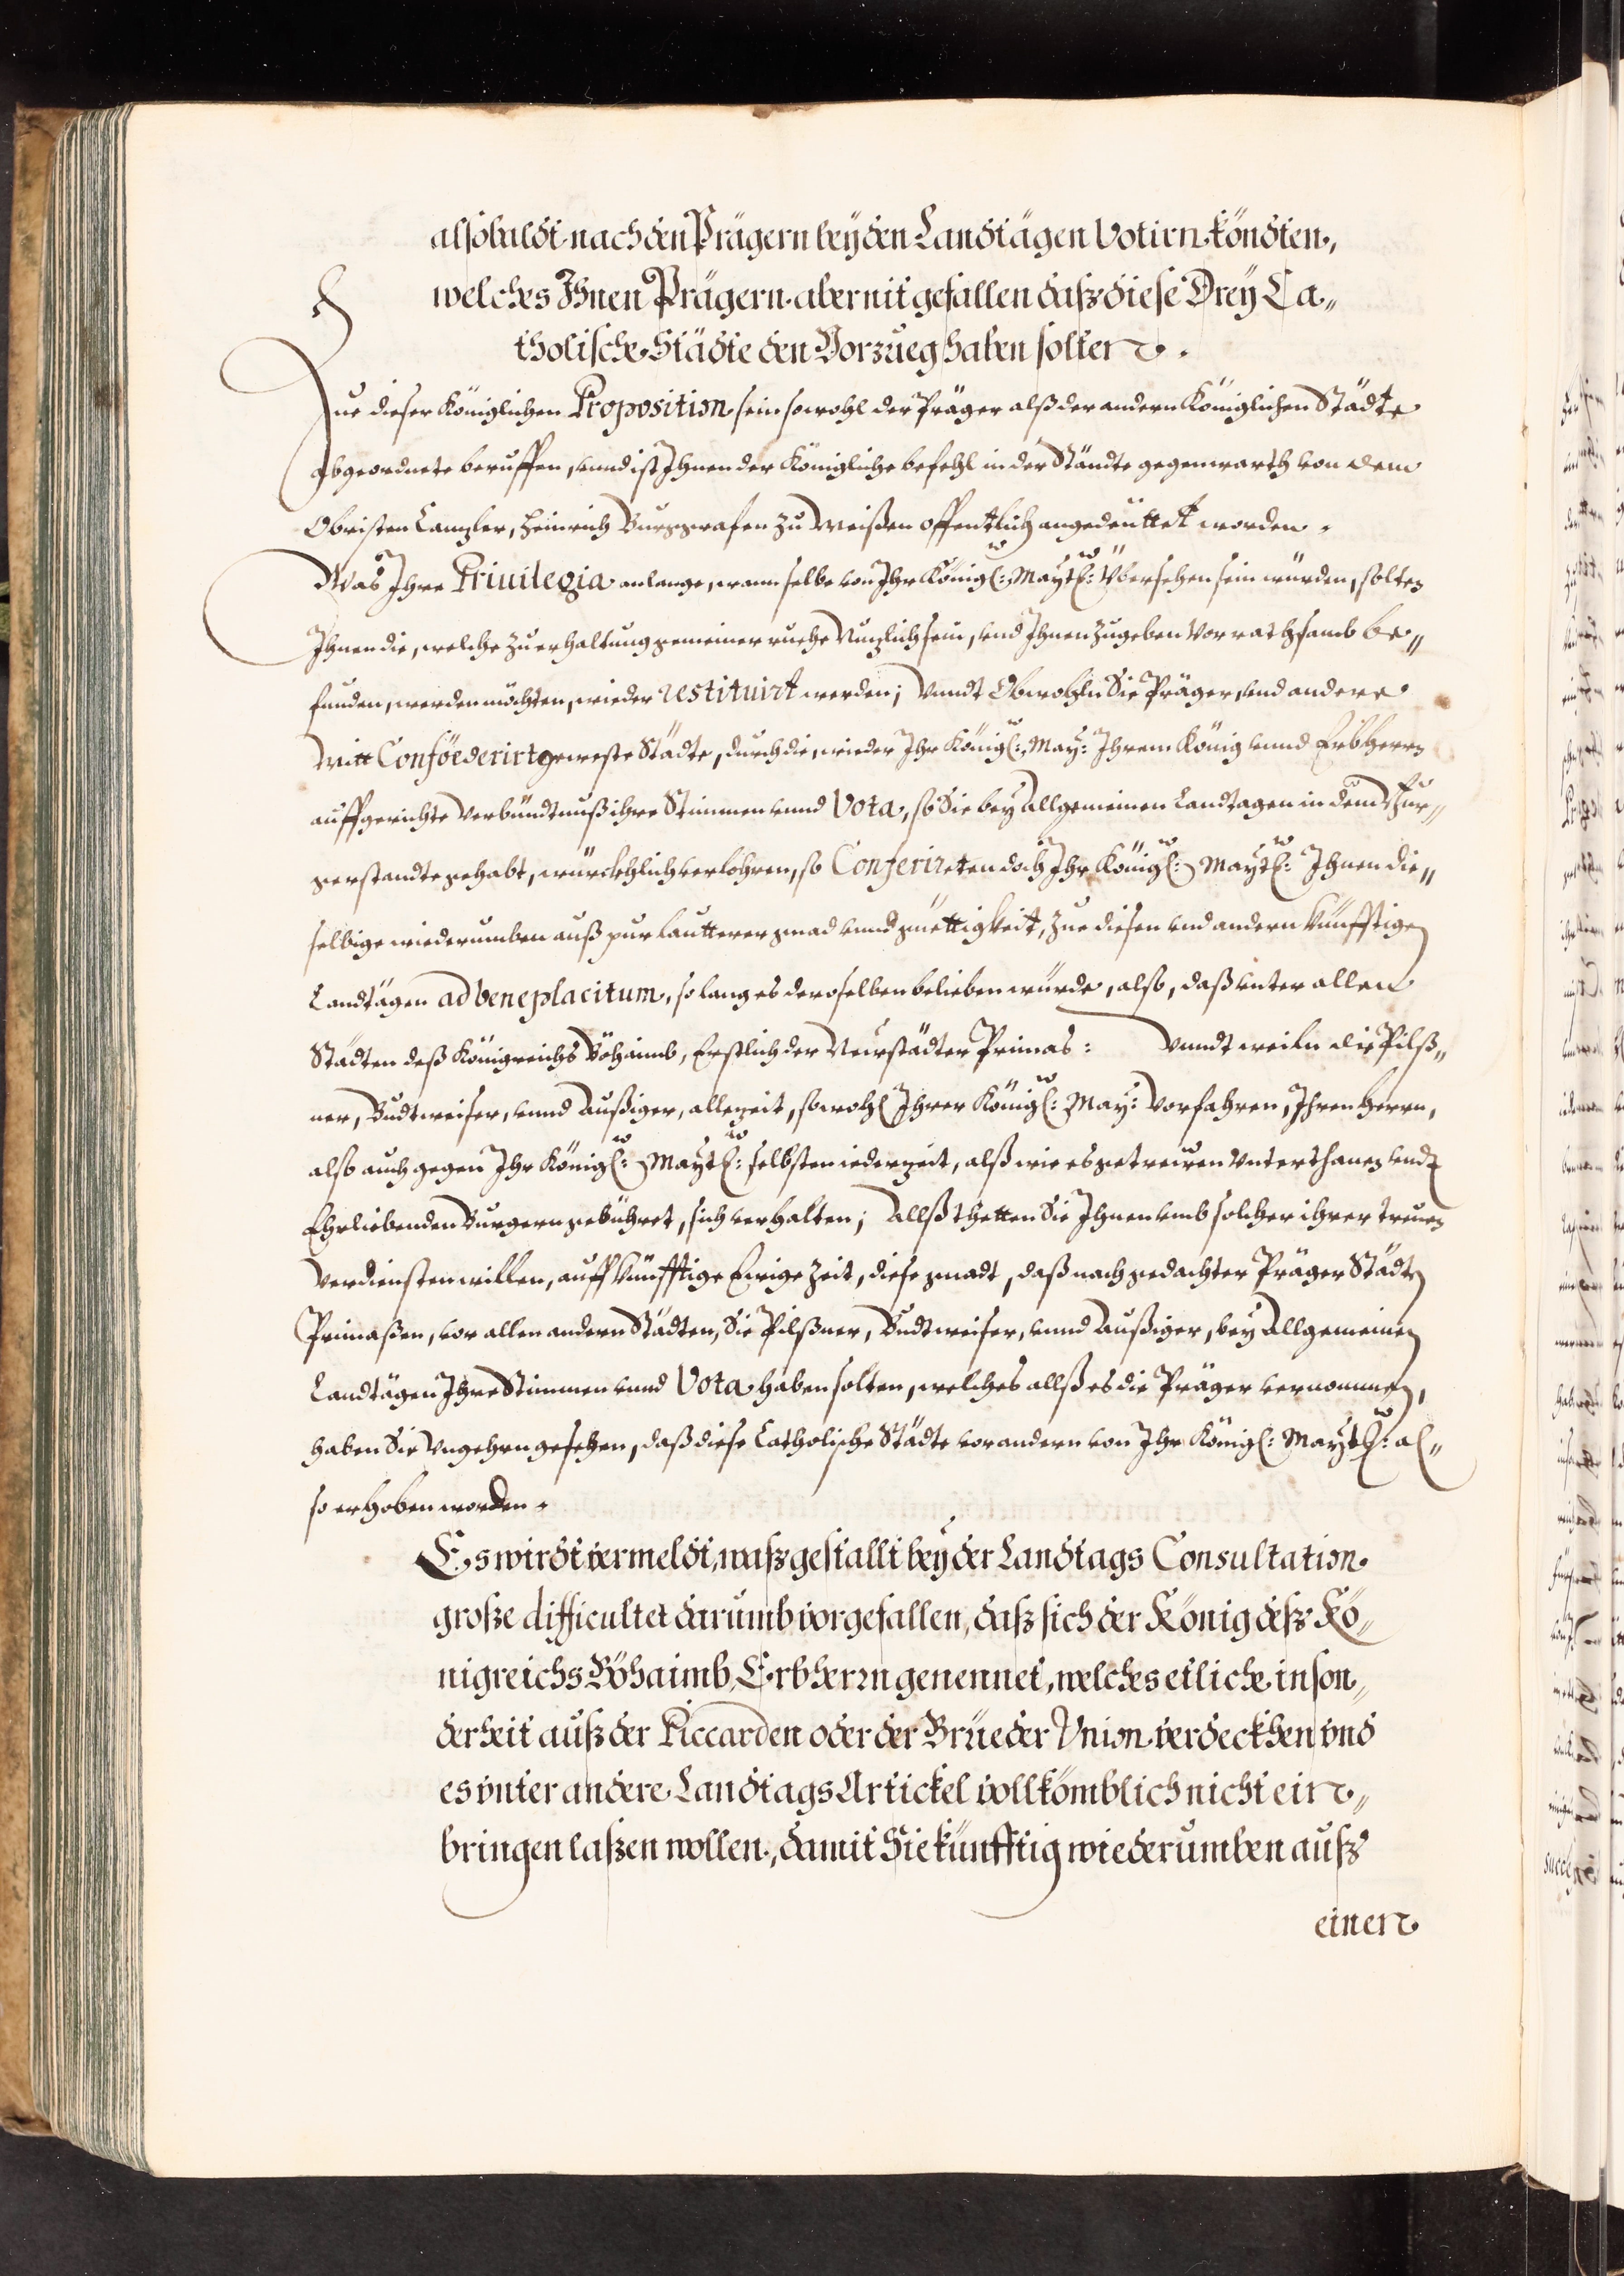 alsobaldt nach den Prägern bey den Landtägen Votirn köndten,
welches Ihnen Prägern aber nit gefallen daß diese Drey Ca„
tholische Städte den Vorzueg haben solten.
Zue dieser Königlichen Proposition sein sowohl der Präger alß der andern Königlichen Städte
abgeordnete beruffen, vnnd ist Ihnen der Königliche befehl in der Ständte gegenwarth von dem
Obristen Canzler, Heinrich Burggrafen zu Meißen offentlich angedeüttet worden.
Was Ihre Priuilegia anlange, wann selbe von Ihr Königl: Maytl: Übersehen sein würden, solten
Ihnen die, welche zu erhaltung gemeiner ruehe Nuzlich sein, vnd Ihnen zugeben Vor rathsamb be„
funden, werden möchten, wieder restituirt werden; Vnndt Obwohln Sie Präger, vnd andere
Mitt Conföederirt geweste Städte, durch die, wieder Ihr Königl: May: Ihrem König vnnd Erbherrn
auffgerichte Verbündtnuß ihre Stimmen vnnd Vota, so Sie bey Allgemeinen Landtagen in dem Bur„
gerstandte gehabt, würckhlich verlohren, so Conferirten doch Ihr Königl: Maytl: Ihnen die„
selbige wiederumben auß pur lautterer gnad vnnd güettigkeit, zue diesen vnd andern künfftigen
Landtägen ad beneplacitum, so lang es deroselben belieben würde, also, daß vnter allen
Städten deß Königreichs Böhaimb, Erstlich der Neustädter Primas: Vnndt weiln die Pilß„
ner, Budtweiser, vnnd Außiger, allezeit, sowohl Ihrer Königl: May: Vorfahren, Ihren Herrn,
also auch gegen Ihr Königl: Maytl: selbsten iederzeit, alß wie es getreuen Vnterthanen vndt
Ehrliebenden Burgern gebühret, sich verhalten; Allß thetten Sie Ihnen vmb solcher ihrer treuen
Verdiensten willen, auff künfftige Ewige Zeit, diese gnadt, daß nach gedachter Präger Städte
Primaßen, vor allen andern Städten, Sie Pilßner, Budtweiser, vnnd Außiger, bey Allgemeinen
Landtägen Ihre Stimmen vnnd Vota haben solten, welches allß es die Präger vernommen,
haben Sie Vngehrn gesehen, daß diese Catholische Städte vor andern von Ihr Königl: Maytl: al„
so erhoben worden.
Es wirdt vermeldt, waßgestallt bey der Landtags Consultation
große difficultet darumb vorgefallen, daß sich der König deß Kö„
nigreichs Böhaimb, Erbherrn genennet, welches etliche in son„
derheit auß der Piccarden oder der Brüeder Vnion verdeckhen vnd
es vnter andere Landtags Artickel vollkömblich nicht ein„
bringen laßen wollen, damit Sie künfftig wiederumben auß
einen